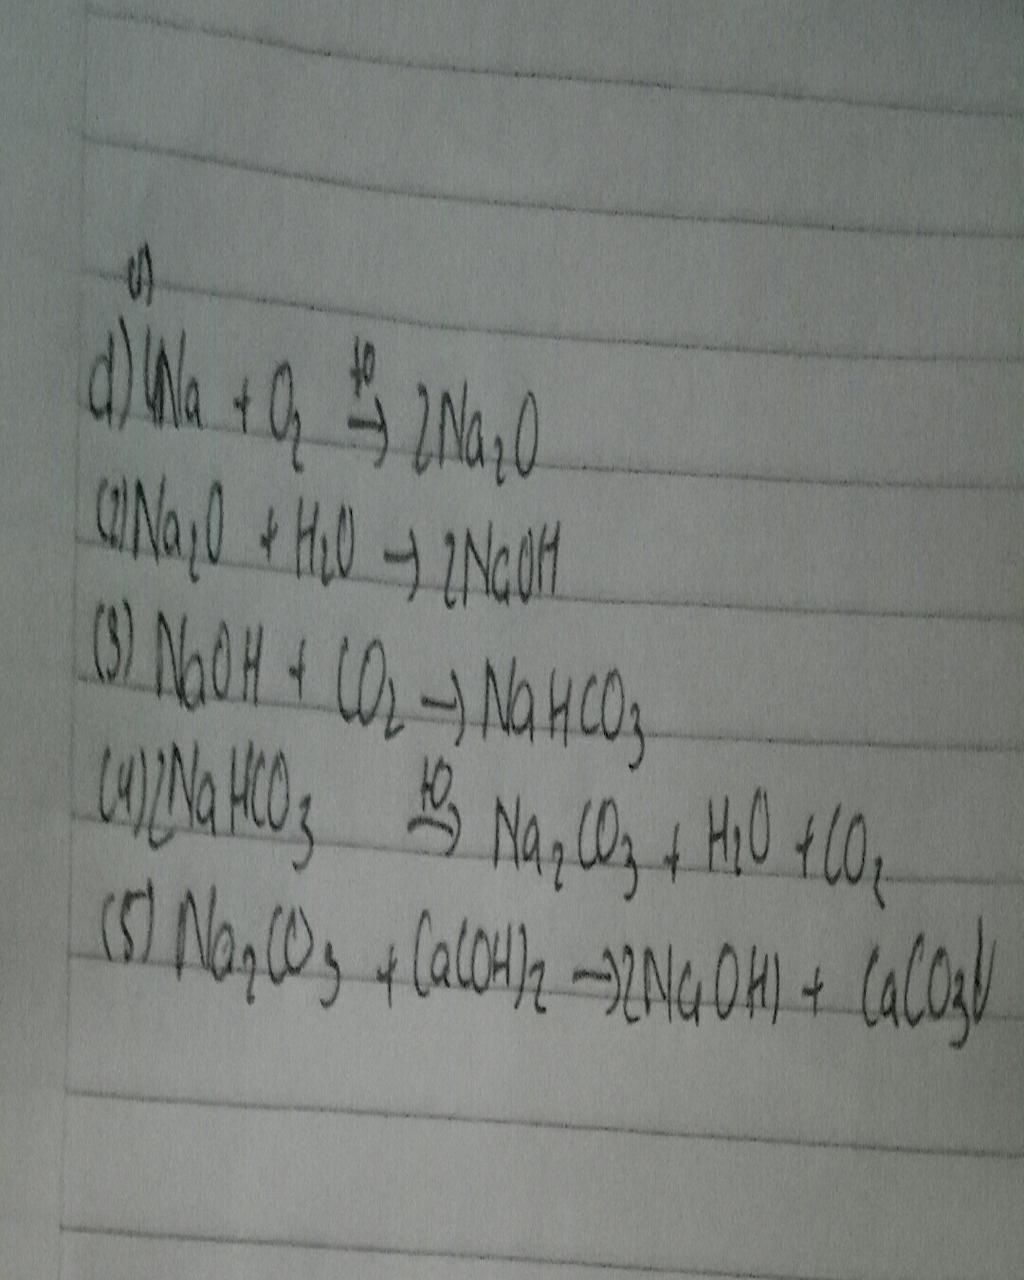 d) 4Na + O₂ →^{t⁰} 2Na₂O
(2) Na₂O + H₂O → 2NaOH
(3) NaOH + CO₂ → NaHCO₃
(4) 2NaHCO₃ →^{t⁰} Na₂CO₃ + H₂O + CO₂
(5) Na₂CO₃ + Ca(OH)₂ → 2NaOH + CaCO₃↓